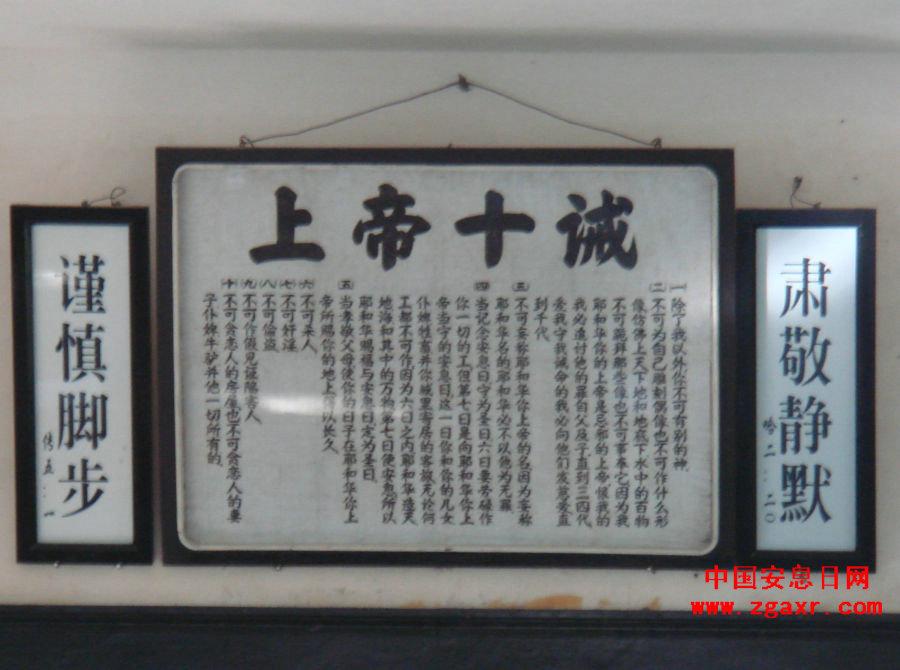 上帝十诫
㈠除了我以外你不可有别的神.
㈡不可为自己雕刻偶像也不可作什么形
像仿佛上天下地和地底下水中的百物
不可跪拜那些像也不可事奉它因为我
耶和华你的上帝是忌邪的上帝恨我的
我必追讨他的罪自父及子直到三四代
爱我守我诫命的我必向他们发慈爱直
到千代.
㈢不可妄称耶和华你上帝的名因为妄称
耶和华名的耶和华必不以他为无罪
㈣当记念安息日守为圣日六日要劳碌作
你一切的工但第七日是向耶和华你上
帝当守的安息日这一日你和你的儿女
仆婢牲畜并你城里寄居的客旅无论何
工都不可作因为六日之内耶和华造天
地海和其中的万物第七日便安息所以
耶和华赐福与安息日定为圣日.
㈤当孝敬父母使你的日子在耶和华你上
帝所赐你的地上得以长久
㈥不可杀人
㈦不可奸淫
㈧不可偷盗
㈨不可作假见证陷害人.
㈩不可贪恋人的房屋也不可贪恋人的妻
子仆婢牛驴并他一切所有的.
肃敬静默
哈·二…二〇
谨慎脚步
传五…一
中国安息日网
www.zgaxr.com